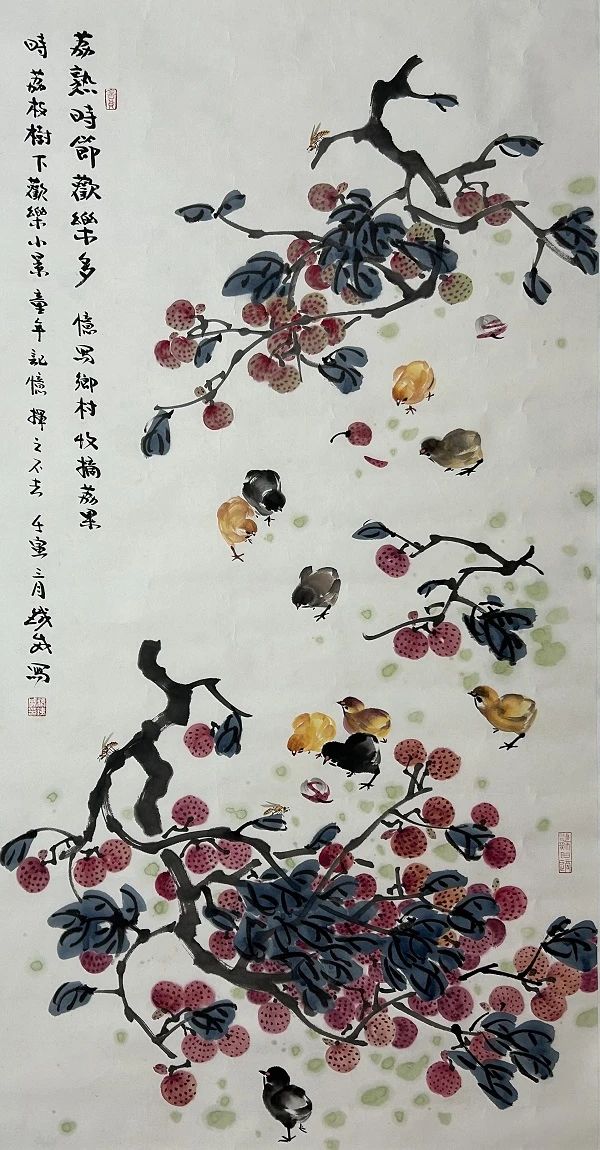 荔熟時節歡樂多 憶兒鄉村收摘荔果
時荔枝樹下歡樂小景童年記憶揮之不去 壬寅三月 寫